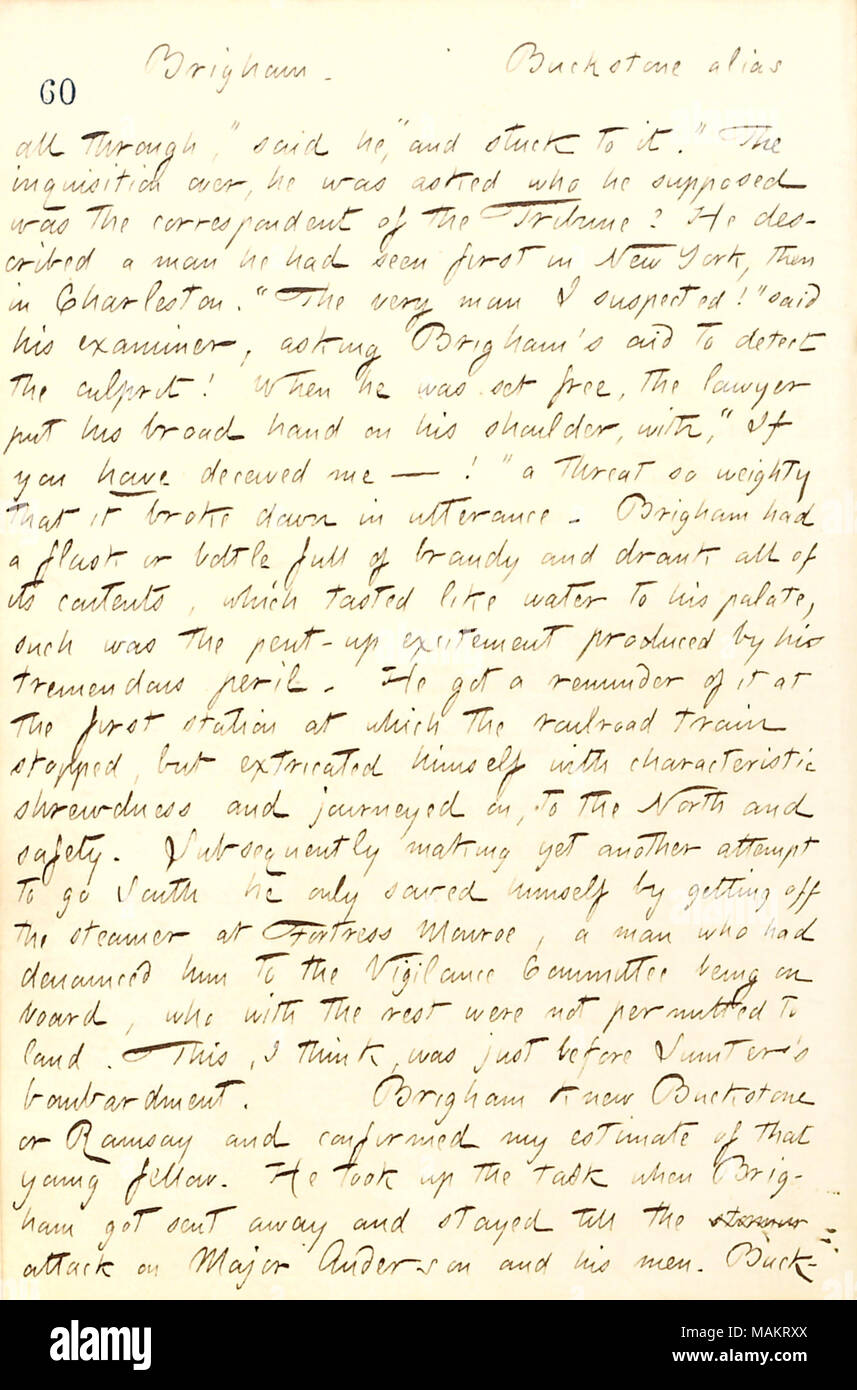 60
Brigham. Buckstone alias
all through," said he, "and stuck to it." The
inquisition over, he was asked who he supposed
was the correspondent of the Tribune? He des-
cribed a man he had seen first in New York, then
in Charleston. "The very man I suspected!" said
his examiner, asking Brigham's aid to detect
the culprit! When he was set free, the lawyer
put his broad hand on his shoulder, with, "If
you have deceived me — !" a threat so weighty
that it broke down in utterance. Brigham had
a flask or bottle full of brandy and drank all of
its contents, which tasted like water to his palate,
such was the pent-up excitement produced by his
tremendous peril. He got a reminder of it at
the first station at which the railroad train
stopped, but extricated himself with characteristic
shrewdness and journeyed on, to the North and
safety. Subsequently making yet another attempt
to go South he only saved himself by getting off
the steamer at Fortress Monroe, a man who had
denounced him to the Vigilance Committee being on
board, who with the rest were not permitted to
land. This, I think, was just before Sumter's
bombardment. Brigham knew Buckstone
or Ramsay and confirmed my estimate of that
young fellow. He took up the task when Brig-
ham got sent away and stayed till the
attack on Major Anderson and his men. Buck-
alamy
Image ID: MAKRXX
www.alamy.com